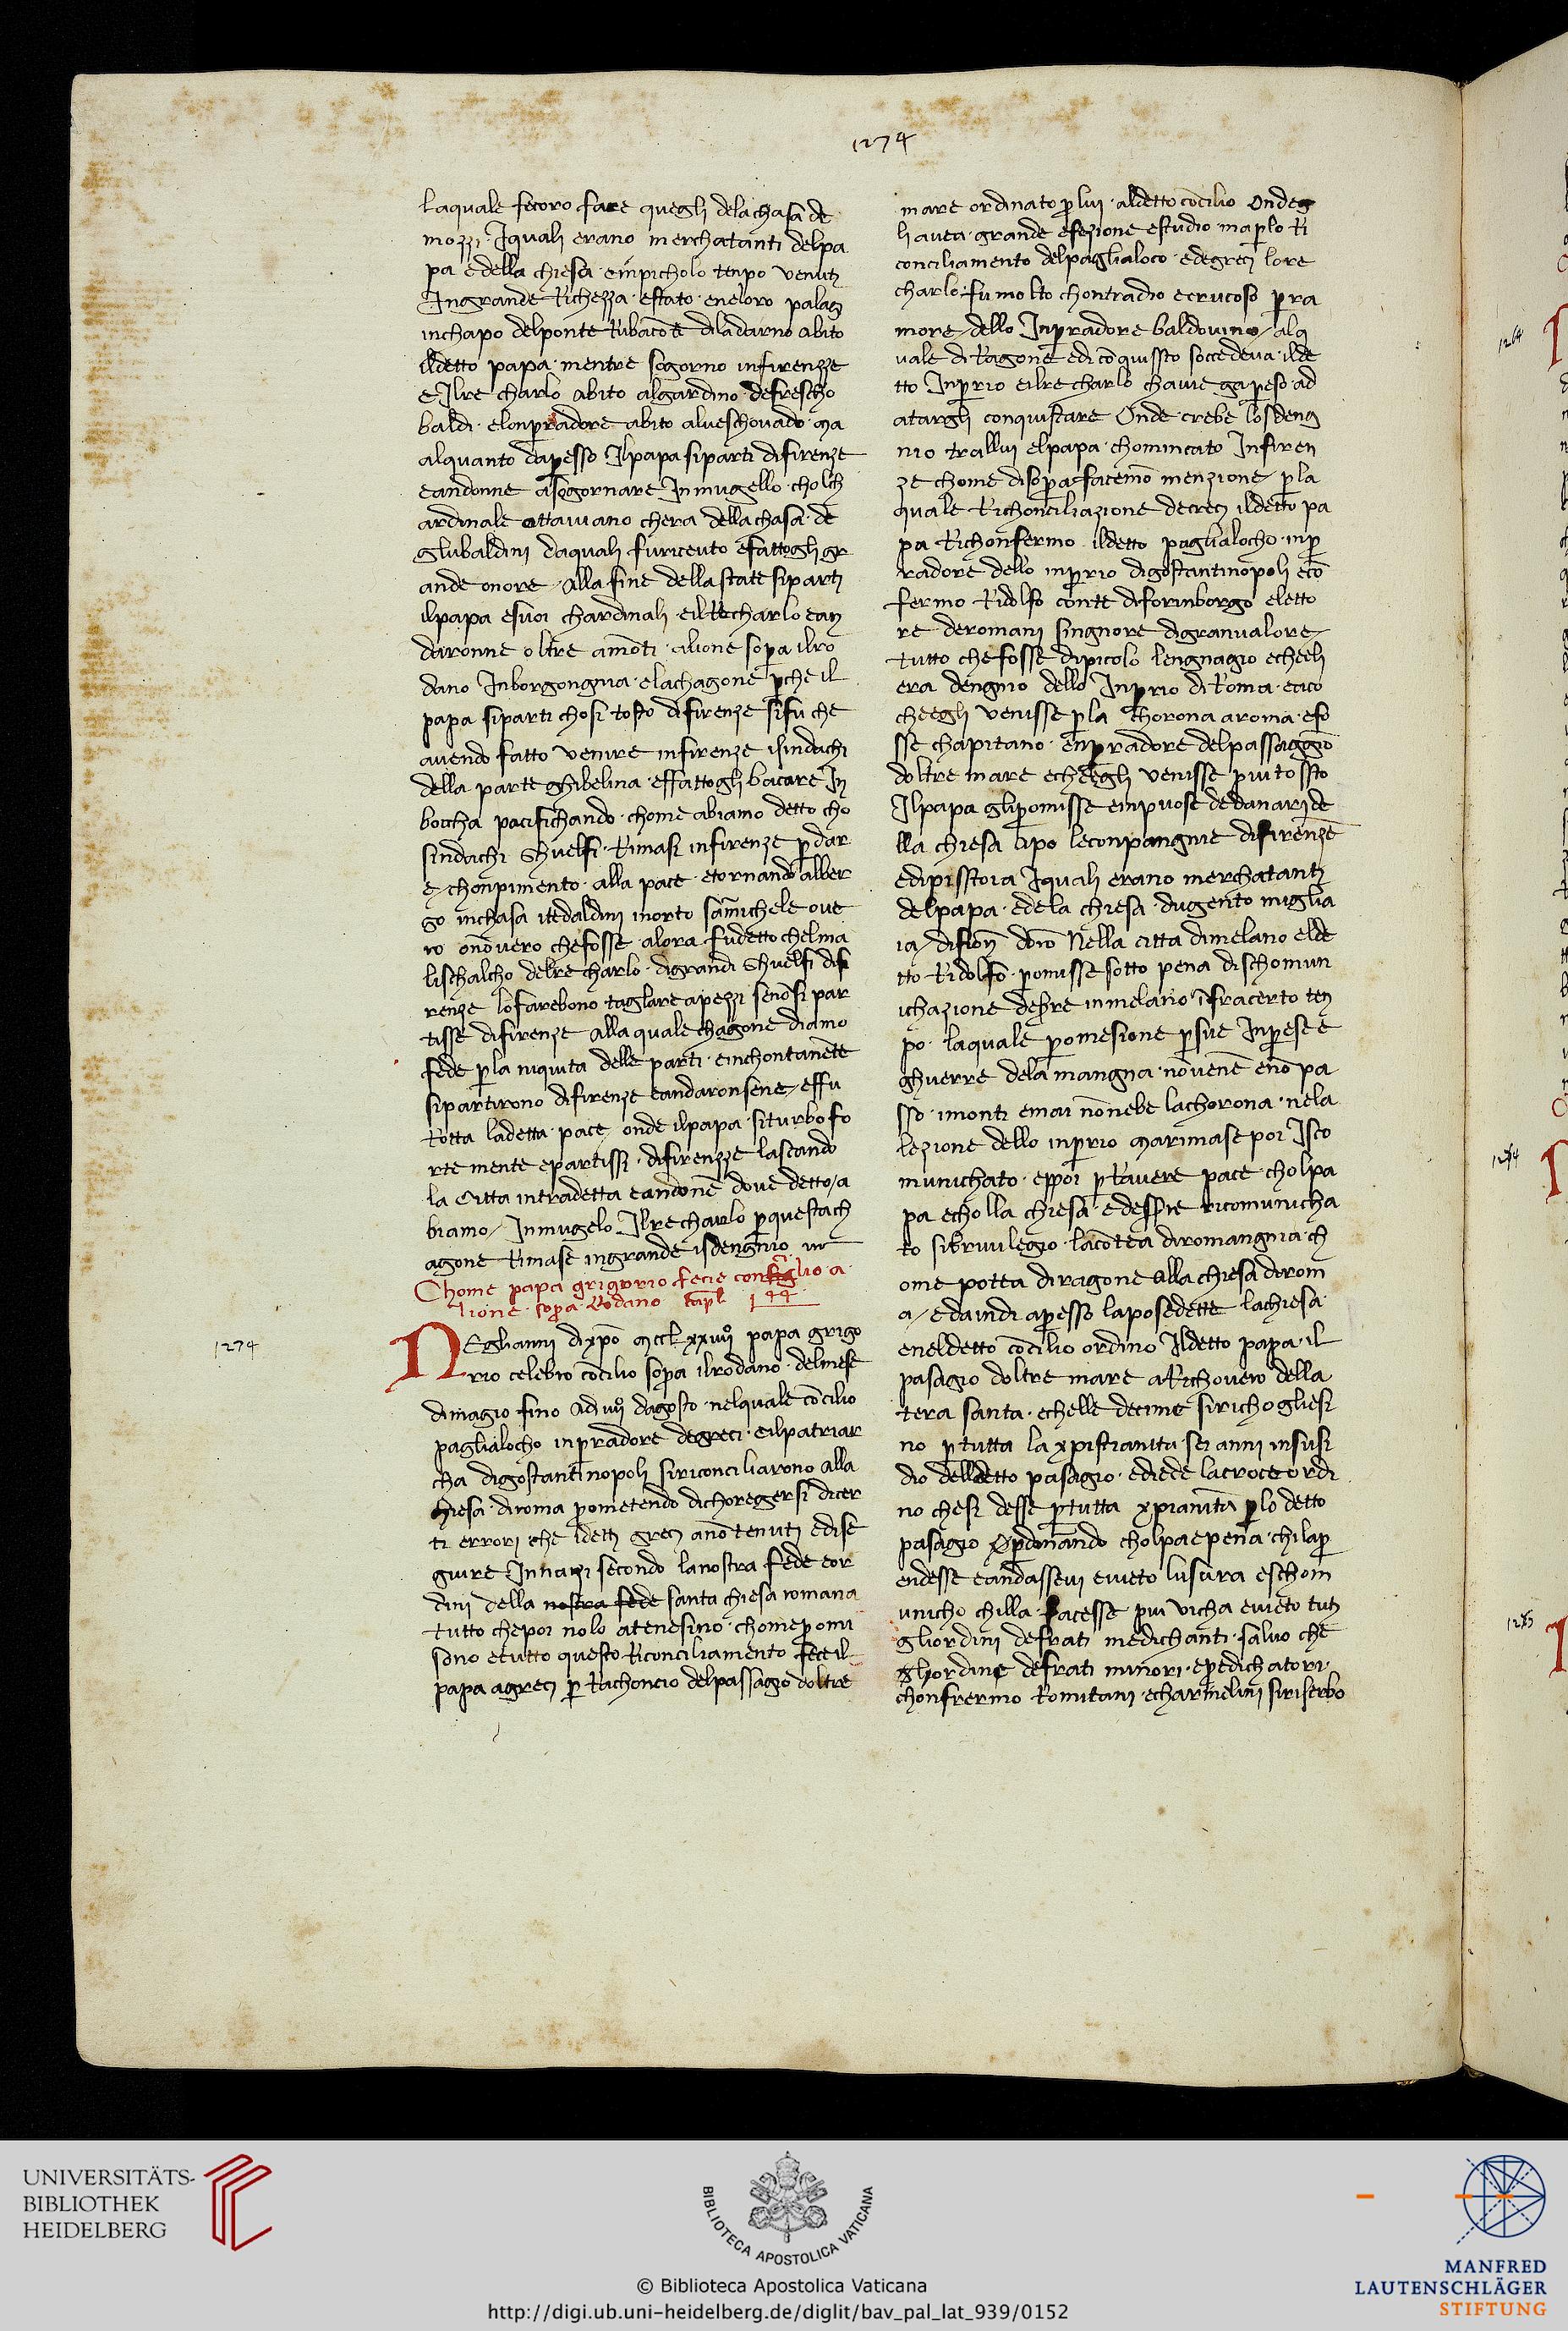 1274
laquale fecoro fare quegli dela chasa de
mozzi · Iquali erano merchatanti delpa
pa e della chiesa · einpicholo tenpo venuti
Ingrande Richezza · estato · eneloro palaz
inchapo delponte Rubaconte diladarno abito
ildetto papa · mentre sogorno infirenzze
e Ilre charlo abito algardino · defrescho
baldi · elonpradore abito alveschovado · ma
alquanto dapesso Ilpapa siparti difirenze
eandonne asogornare Inmugello · cholch
ardinale ottaviano chera della chasa · de
glubaldini daquali furicevto efattogli gr
ande onore · alla fine della state siparti
ilpapa esuoi chardinali · eilRe charlo ean
daronne oltre amōti · alione sopra ilro
dano Inborgongnia · elachagone pche il
papa siparti chosi tosto difirenze sifu che
avendo fatto venire infirenze isindachi
della parte ghibelina · effattogli bacare In
boccha pacifichando · chome abiamo detto cho
sindachi Ghuelfi · Rimasi infirenze p dar
e chonpimento · alla pace · etornando alber
go inchasa itedaldini inorto sāmichele ove
ro onōvero chefosse · alora · fudetto chelma
lischalcho delre charlo · digrandi Ghuelfi difi
renze lofarebono · taglare apezzi senōsi par
tisse difirenze alla quale chagone diamo
fede pla niquita delle parti · einchontanēte
sipartirono difirenze eandaronsene / effu
Rotta ladetta · pace / onde ilpapa · siturbo fo
rte mente epartissi · difirenzze lasciando
la citta intradetta eandonē dove detto / a
biamo / Inmugelo Ilre charlo pquesta ch
agone Rimase ingrande isdengnio
Chome papa grigorio fecie consiglio · a
lione · sopra Rodano capl 144
1274
NEglianni dixpō mcclxxiiii° papa grigo
rio celebro cōcilio sopra ilrodano · delmese
dimagio fino adiiiii° dagosto · nelquale cōcilio
paglialocho inpradore degreci · eilpatriar
cha digostantinopoli siriconciliarono alla
hiesa · diroma pometendo dichoregersi dicer
ti errori che idetti greci anō tenuti edise
guire Innanzi secondo lanostra fede eor
dini della nostra fede santa chiesa romana
tutto chepoi nolo atenesino · chome pomi
sono etutto questo Riconciliamento feceil
papa agreci p Rachoncio delpassagio doltre
mare ordinato p lui · aldetto cōcilio Ondeg
li avea · grande efezione estudio · maplo Ri
conciliamento delpaglialoco · edegreci lore
charlo · fu molto chontradio ecrucoso pra
more dello Inpradore baldovino / alq
uale diRagone edicōquissto soccedeva · ilde
tto Inprio eilre charlo chavie gapeso ad
atargli conquistare Onde crebe losdeng
nio trallui elpapa · chomincato Infiren
ze chome disopra facemō menzione / pla
quale Richonciliazione degreci ildetto pa
pa Richonfermo ildetto paglialocho · inp
radore dello inprio digostantinopoli ecō
fermo Ridolfo conte diforinborgo eletto
re deromani singnore digranvalore
tutto chefosse dipicolo lengnagio echegli
era dengnio dello Inprio diRoma · eaco
cheegli venisse pla chorona aroma · efo
sse chapitano · enpradore delpassaggio
doltre mare echeegli venisse piutossto
Ilpapa glipomisse einpuose dedanari de
lla chiesa apo leconpangnie difirenze
edipisstoia Iquali erano merchatanti
delpapa · edela chiesa · dugento miglia
ia / difiorī doro Nella citta dimelano elde
tto Ridolfo · pomisse sotto pena dischomun
ichazione desre inmelano ifracerto ten
po · laquale pomesione psue Inpese e
ghuerre dela mangna · nōvenē enō pa
sso · imonti emai nōnebe lachorona · nela
lezione dello inprio marimase poi Isco
munichato · eppoi pRavere pace · cholpa
pa echolla chiesa · edessere ricomunicha
to sibrivilegio · lacōtea diromangnia · ch
ome potea diragone alla chiesa dirom
a / edaindi apesso laposedette lachiesa
eneldetto cōcilio ordino Ildetto papa · il
pasagio doltre mare aRichovero della
tera santa · echelle decime sirichogliesi
no ptutta la xpistianita · sei anni insusi
dio delldetto pasagio · ediede lacroce ordi
no chesi desse ptutta xpianita plo detto
pasagio pdonando cholpa epena · chilap
endesse eandassevi evieto lusura eschom
unicho chilla facesse piu vicha evieto tuti
gliordini defrati medichanti · salvo che
gliordine defrati minori · epedichatori ·
chonfrermo Romitani · echarmelini siriserbo
1264
1274
1273
UNIVERSITÄTS-
BIBLIOTHEK
HEIDELBERG
BIBLIOTECA APOSTOLICA VATICANA
© Biblioteca Apostolica Vaticana
http://digi.ub.uni-heidelberg.de/diglit/bav_pal_lat_939/0152
MANFRED
LAUTENSCHLÄGER
STIFTUNG